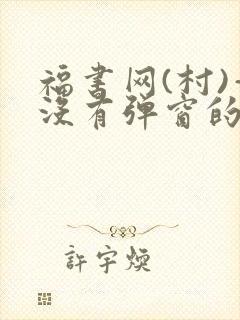 福书网(村)-
没有弹窗的
許宇煥